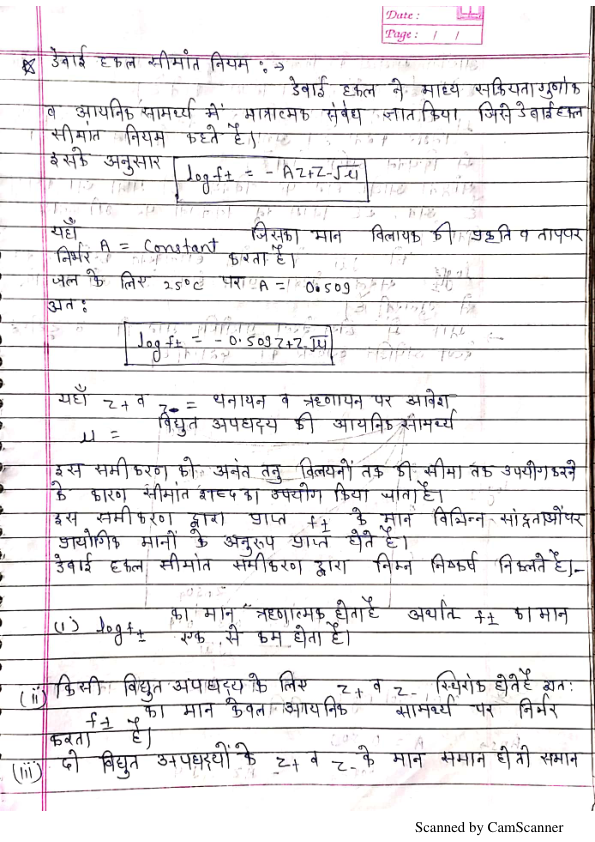 Date :
Page : / /
डेबाई हकल सीमांत नियम : →
डेबाई हकल ने माध्य सक्रियता गुणांक
व आयनिक सामर्थ्य में मात्रात्मक संबंध ज्ञात किया जिसे डेबाई हकल
सीमांत नियम कहते है।
इसके अनुसार log f± = - A Z+ Z- √μ
यहाँ A = Constant जिसका मान विलायक की प्रकृति व ताप पर
निर्भर करता है।
जल के लिए 25°C पर A = 0.509
अत:
log f± = - 0.509 Z+ Z- √μ
यहाँ Z+ व Z- = धनायन व ऋणायन पर आवेश
μ = विद्युत अपघट्य की आयनिक सामर्थ्य
इस समीकरण को अनंत तनु विलयनों तक की सीमा तक उपयोग करने
के कारण सीमांत शब्द का उपयोग किया जाता है।
इस समीकरण द्वारा प्राप्त f± के मान विभिन्न सांद्रताओं पर
प्रायोगिक मानों के अनुरूप प्राप्त होते है।
डेबाई हकल सीमांत समीकरण द्वारा निम्न निष्कर्ष निकलते है।-
(i) log f± का मान ऋणात्मक होता है अर्थात f± का मान
एक से कम होता है।
(ii) किसी विद्युत अपघट्य के लिए Z+ व Z- स्थिरांक होते है अत:
f± का मान केवल आयनिक सामर्थ्य पर निर्भर
करता है।
(iii) दो विद्युत अपघट्यों के Z+ व Z- के मान समान हो तो समान
Scanned by CamScanner